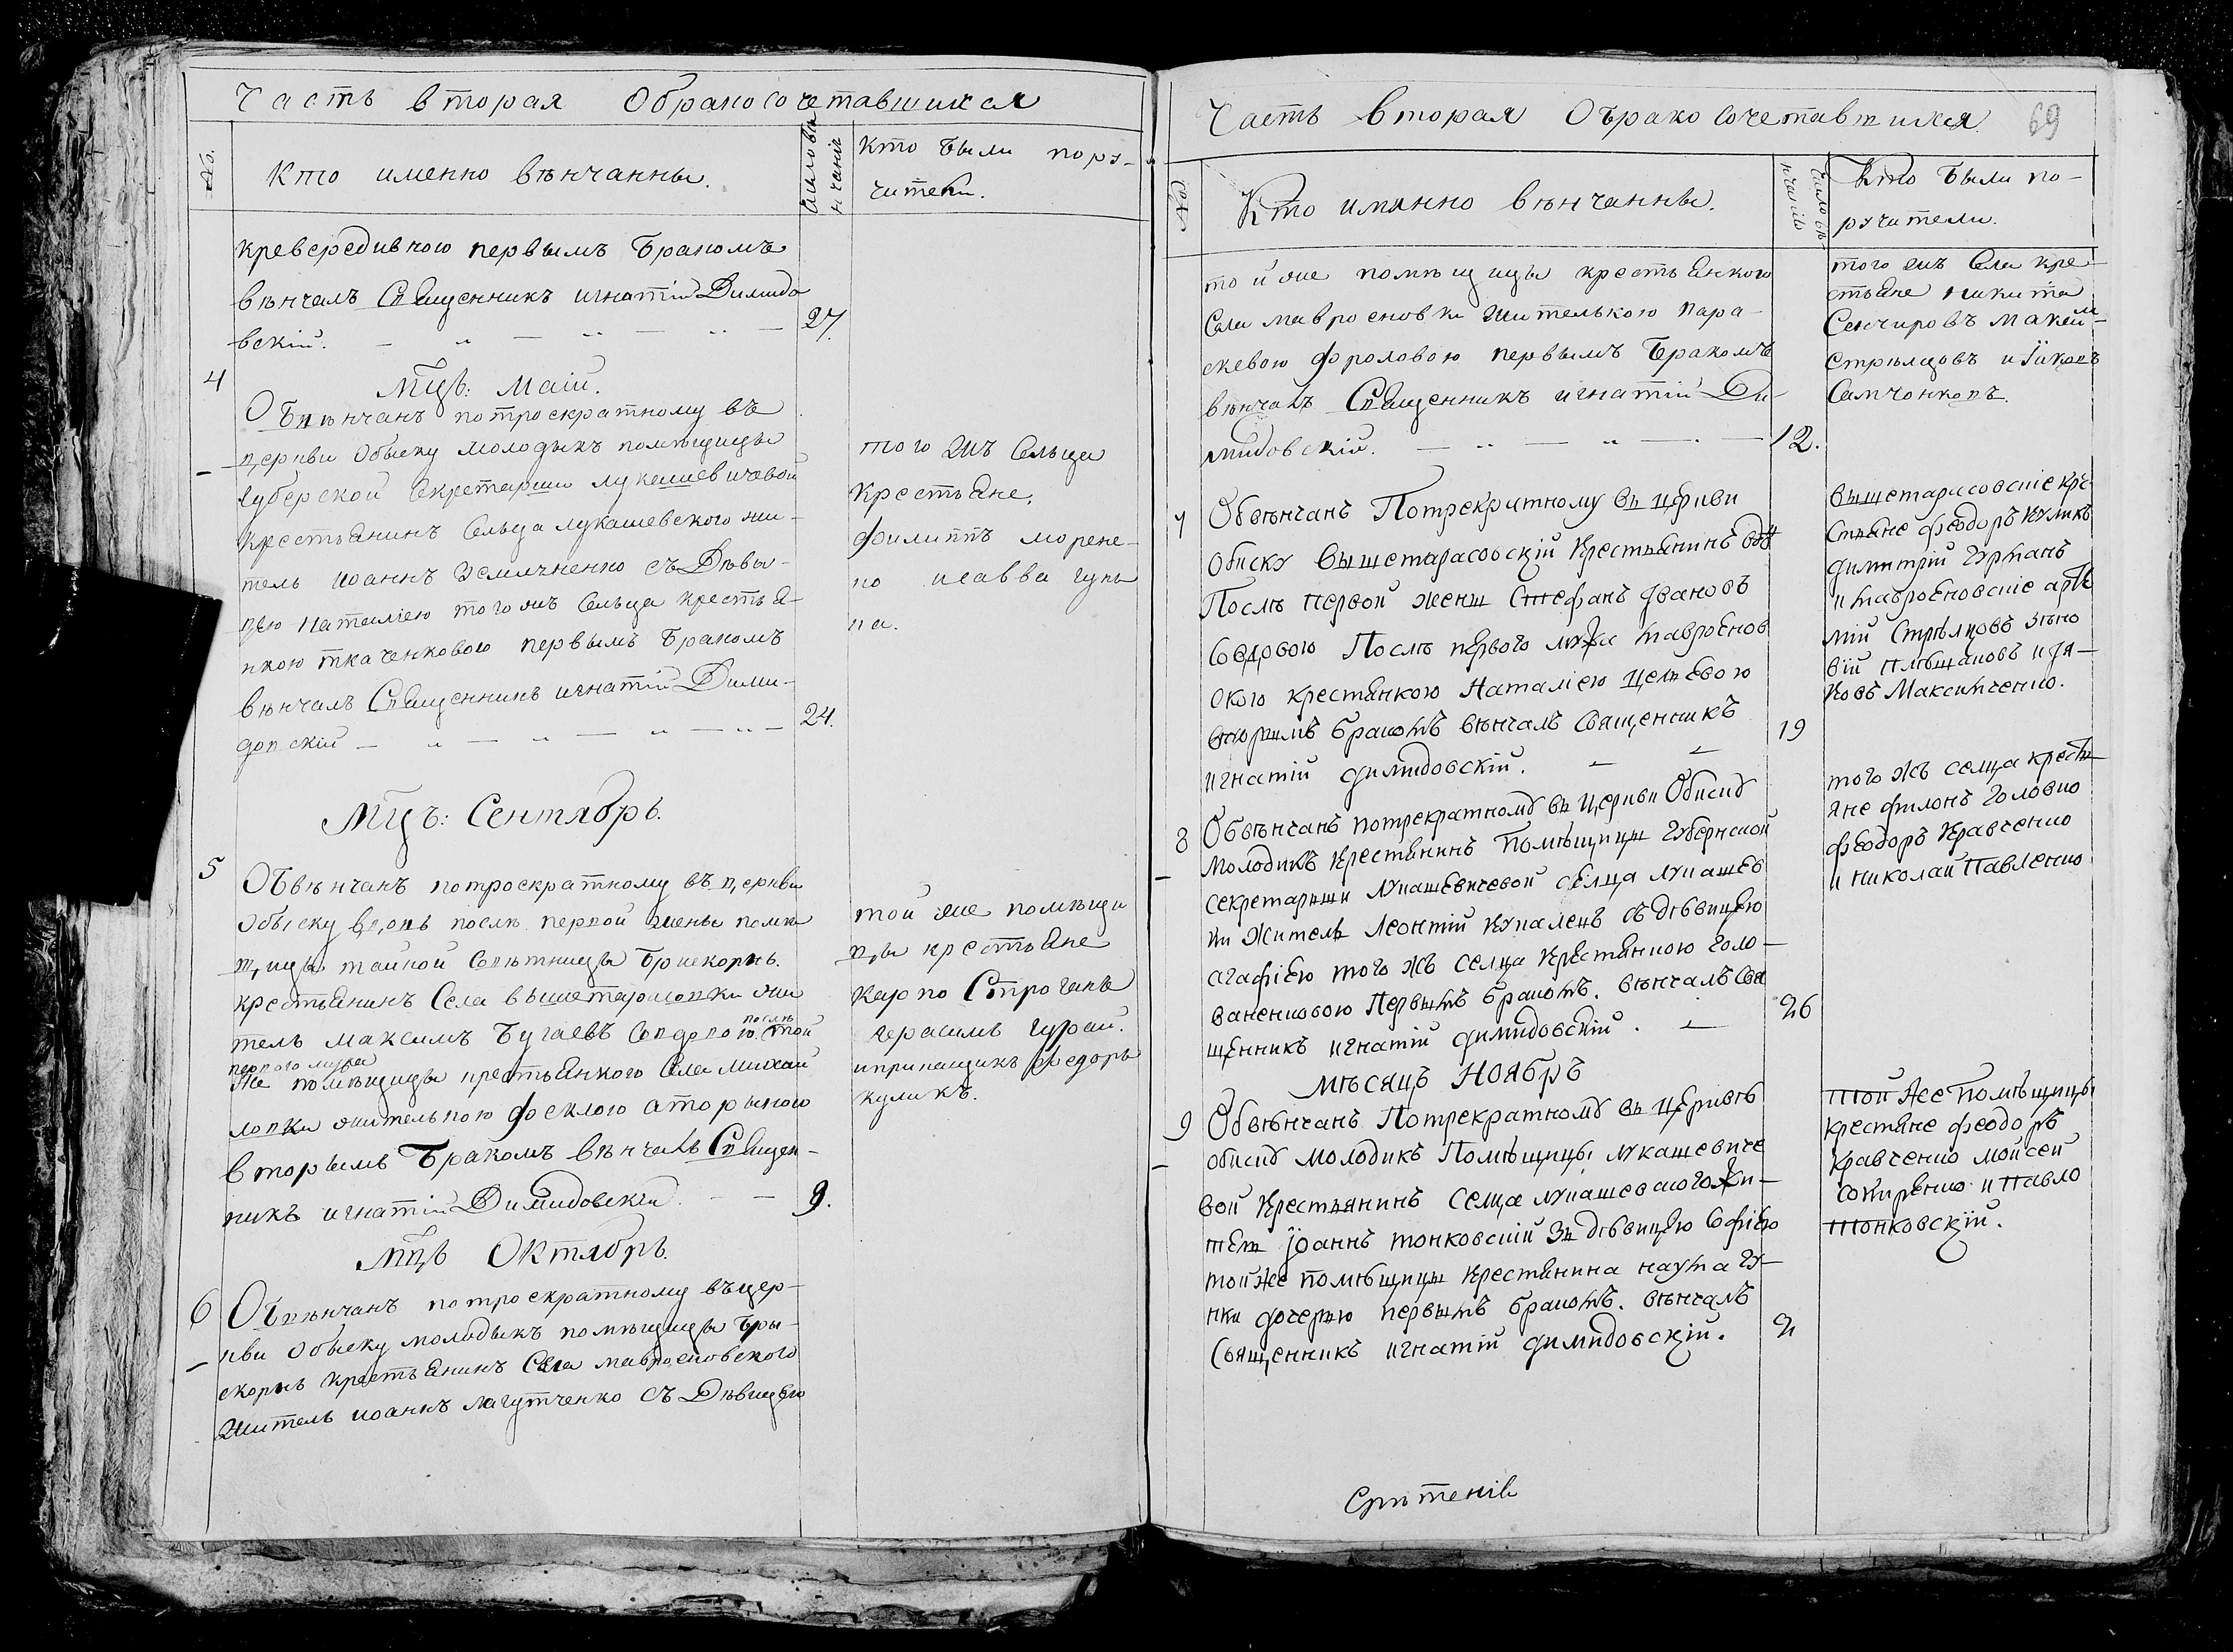 Часть вторая Обракосочетавшихся
№.
Кто именно вѣнчанны.
Число вѣнчаній
Кто были пору-
чители.
кревередивною первымъ бракомъ
вѣнчалъ Священникъ игнатій Димидо
вскій. 27.
4
Мцъ: Маій.
Обвѣнчанъ потроекратному въ
церкви обыску молодыкъ помѣщицы
губерской секретарши лукашевичевой
крестьянинъ Сельца лукашевского жи-
тель иоаннъ Земляненко съ Дѣвы-
цею наталіею того жъ Сельца крестья-
нкою ткаченковою первымъ бракомъ
вѣнчалъ Священникъ игнатій Дими-
довскій 24.
того жъ Сельца
крестьяне,
филиппъ морене-
ко исавва гунь
ка.
Мцъ: Сентябрь.
5
Обвѣнчанъ потроекратному въ церкви
обыску вдовъ послѣ первой жены помѣ
щицы тайной Совѣтницы Брискорнъ.
крестьянинъ Села вышетарасовки жи
тель максимъ Бугаевъ Совдовою послѣ той
первого мужа
же помѣщицы крестьянкого Села михай
ловки жителькою Феклою аторыкою
вторымъ Бракомъ вѣнчалъ Священ-
никъ игнатій Димидовскій 9.
той же помѣщи
цы крестьяне
карпо Строгань
герасимъ гурай.
иприкащикъ федоръ
куликъ.
Мцъ Октябрь.
6
Обвѣнчанъ потроекратному въцер-
кви обыску молодыкъ помѣщицы Бри-
скорнъ крестьянинъ Села мавроеновского
Житель иоаннъ лагутченко съ Дѣвицею
Часть вторая Обракосочетавшихся. 69
Счотъ
Кто имянно вѣнчанны.
Число вѣнчанія
Кто были по-
ручители.
той же помѣщицы крестьянкого
Села мавроеновки Жителькою пара-
скевою фроловою первымъ Бракомъ
вѣнчалъ Священникъ игнатій Ди-
мидовскій. 12.
того жъ Села кре-
стьяне никита
Сенчировъ макси м-
стрѣлцовъ иіаковъ
Самчонковъ.
7
Обвѣнчанъ Потрекратному въ церкви
обиску вышетарасовскій крестьянинъ вдов
Послѣ первой жены Стефанъ Івановъ
совдовою Послѣ первого мужа мавроенов
ского крестянкою Наталіею Целевою
вторымъ бракомъ вѣнчалъ Священникъ 19
игнатій димидовскій.
вышетарасовскіе кре-
стьяне феодоръ куликъ
димитрій Гурманъ
и мавроеновскіе арте
мій Стрѣлцовъ зѣно
вій плѣщаковъ и Iя-
ковъ Максимченко.
8
Обвѣнчанъ потрекратному въ церкви обиску
молодикъ крестянинъ Помѣщицы губернской
секретарши лукашевичевой селца лукашев
ки житель леонтій купалецъ съ дѣвицею
агафіею того жъ селца крестянкою голо-
ваненковою Первымъ бракомъ. вѣнчалъ Свя 26
щенникъ игнатій димидовскій.
того жъ селца кресть
яне филонъ головко
феодоръ кравченко
и николай Павленко
мѣсяцъ Ноябръ
9
Обвѣнчанъ Потрекратному въ церквѣ
обиску молодикъ Помѣщицы лукашевиче
вой крестьянинъ селца лукашевского жи-
тель іоаннъ тонковскій зъ дѣвицею софіею
той же помѣщицы крестянина наума гу-
нки дочерью первымъ бракомъ. вѣнчалъ
Священникъ игнатій димидовскій. 2
той же помѣщицы
крестяне феодоръ
кравченко мойсей
сокиренко и павло
тонковскій.
Срѣтеніе